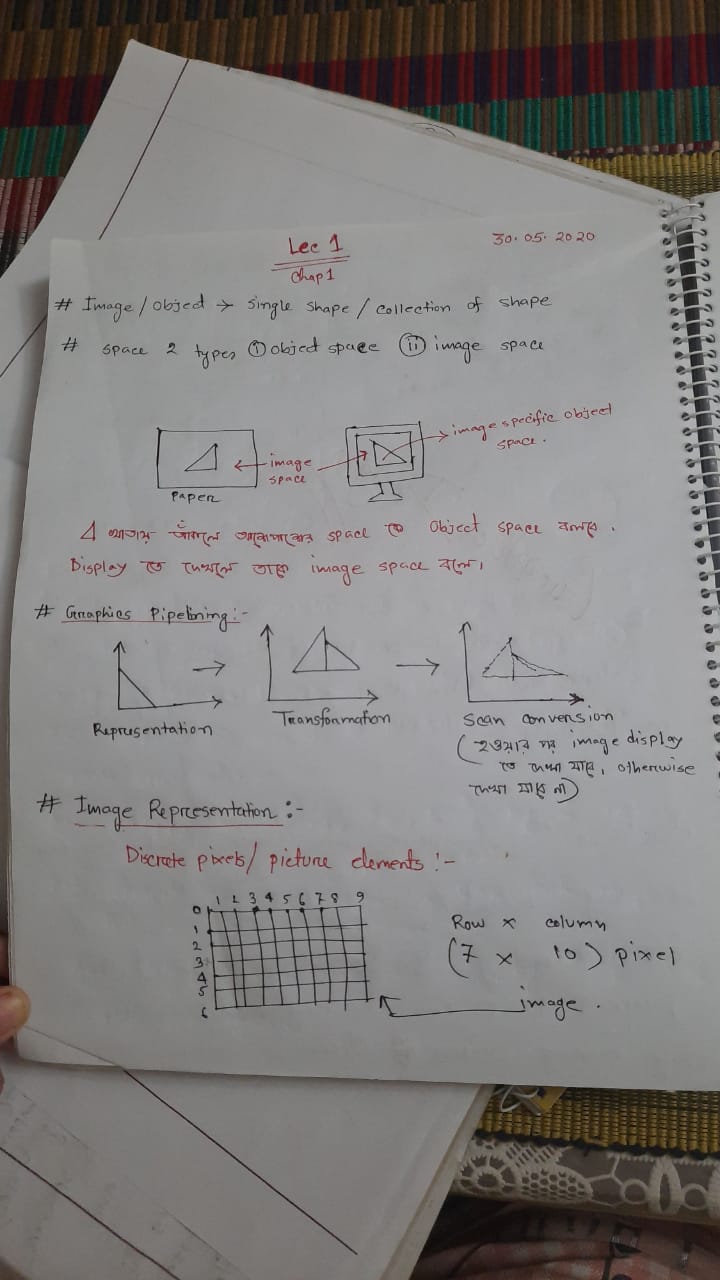 Lec 1
30.05.2020
Chap 1
# Image / object → single shape / collection of shape
# space 2 types ① object space ② image space
image specific object
space.
image
space
Paper
Δ খাতায় আঁকলে space কে object space বলবে.
Display তে দেখলে তাকে image space বলে।
# Graphics Pipelining:-
Representation
Transformation
Scan conversion
(হওয়ার পর image display
তে দেখা যাবে, otherwise
দেখা যাবে না)
# Image Representation:-
Discrete pixels/ picture elements:-
1 2 3 4 5 6 7 8 9
0
1
2
3
4
5
6
Row x column
(7 x 10) pixel
image.